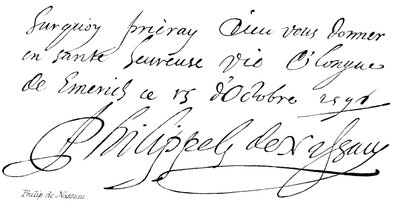 Surquoy prieray Dieu vous donner
en sante heureuse vie & longue
de Emerich ce 15 d'Octobre
Philippe de Nassau
Philip de Nassau.